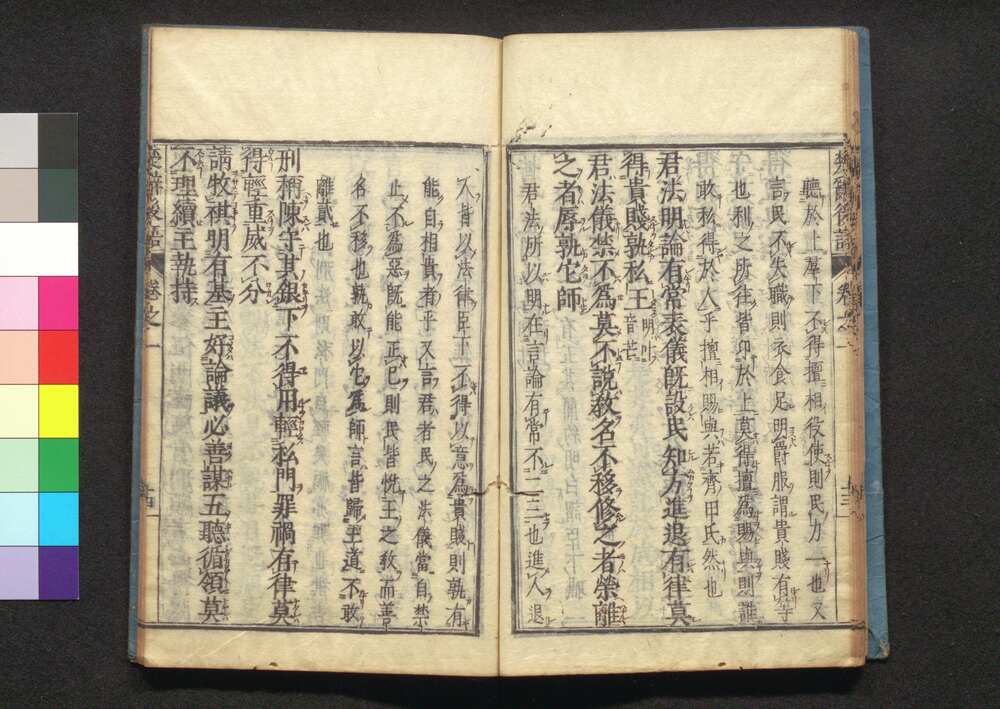 楚辭後語 卷之一 十三
聽於上羣下不得擅相役使則民力一也又
言民不失職則衣食足明爵服謂貴賤有等
也利之所往皆卬於上莫得擅爲賜與則誰
敢私得於人乎擅相賜與若齊田氏然也
君法明論有常表儀既設民知方進退有律莫
得貴賤孰私王明叶音芒
君法儀禁不爲莫不說教名不移修之者榮離
之者辱孰它師
君法所以明在言論有常不二三也進人退
人皆以法律臣下不得以意爲貴賤則孰有
能自相貴者乎又言君者民之法儀當自禁
止不爲惡既能正己則民皆悅王之教而善
名不移也孰敢以它爲師言皆歸王道不敢
離貳也
刑稱陳守其銀下不得用輕私門罪禍有律莫
得輕重威不分
請牧祺明有基主好論議必善謀五聽循領莫
不理續主執持
楚辭後語 卷之一 十四